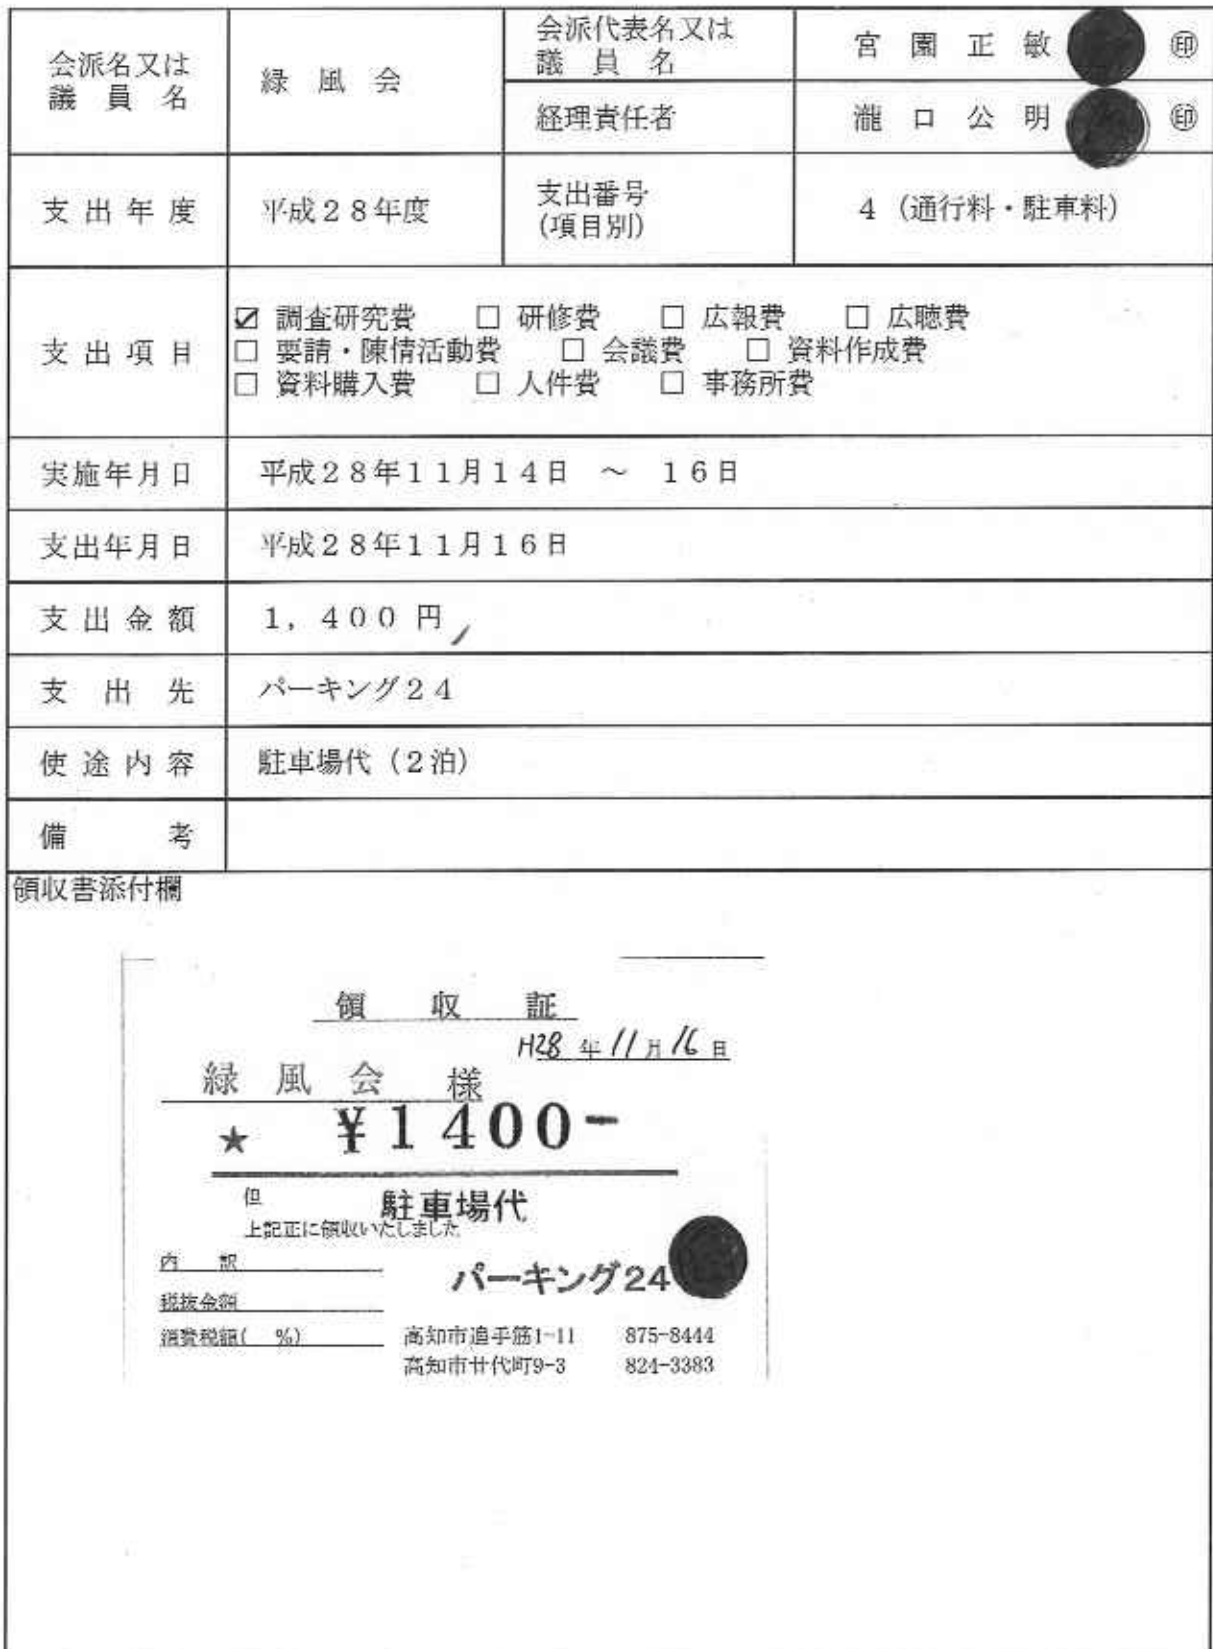 会派名又は
議員名
緑風会
会派代表名又は
議員名
宮園正敏 ㊞
経理責任者
瀧口公明 ㊞
支出年度
平成28年度
支出番号
(項目別)
4（通行料・駐車料）
支出項目
☑ 調査研究費 □ 研修費 □ 広報費 □ 広聴費
□ 要請・陳情活動費 □ 会議費 □ 資料作成費
□ 資料購入費 □ 人件費 □ 事務所費
実施年月日
平成28年11月14日 ～ 16日
支出年月日
平成28年11月16日
支出金額
1，400円
支出先
パーキング24
使途内容
駐車場代（2泊）
備考
領収書添付欄
領収証
H28年11月16日
緑風会 様
★ ¥1400-
但 駐車場代
上記正に領収いたしました
内訳
パーキング24
税抜金額
消費税額( %)
高知市追手筋1-11 875-8444
高知市廿代町9-3 824-3383